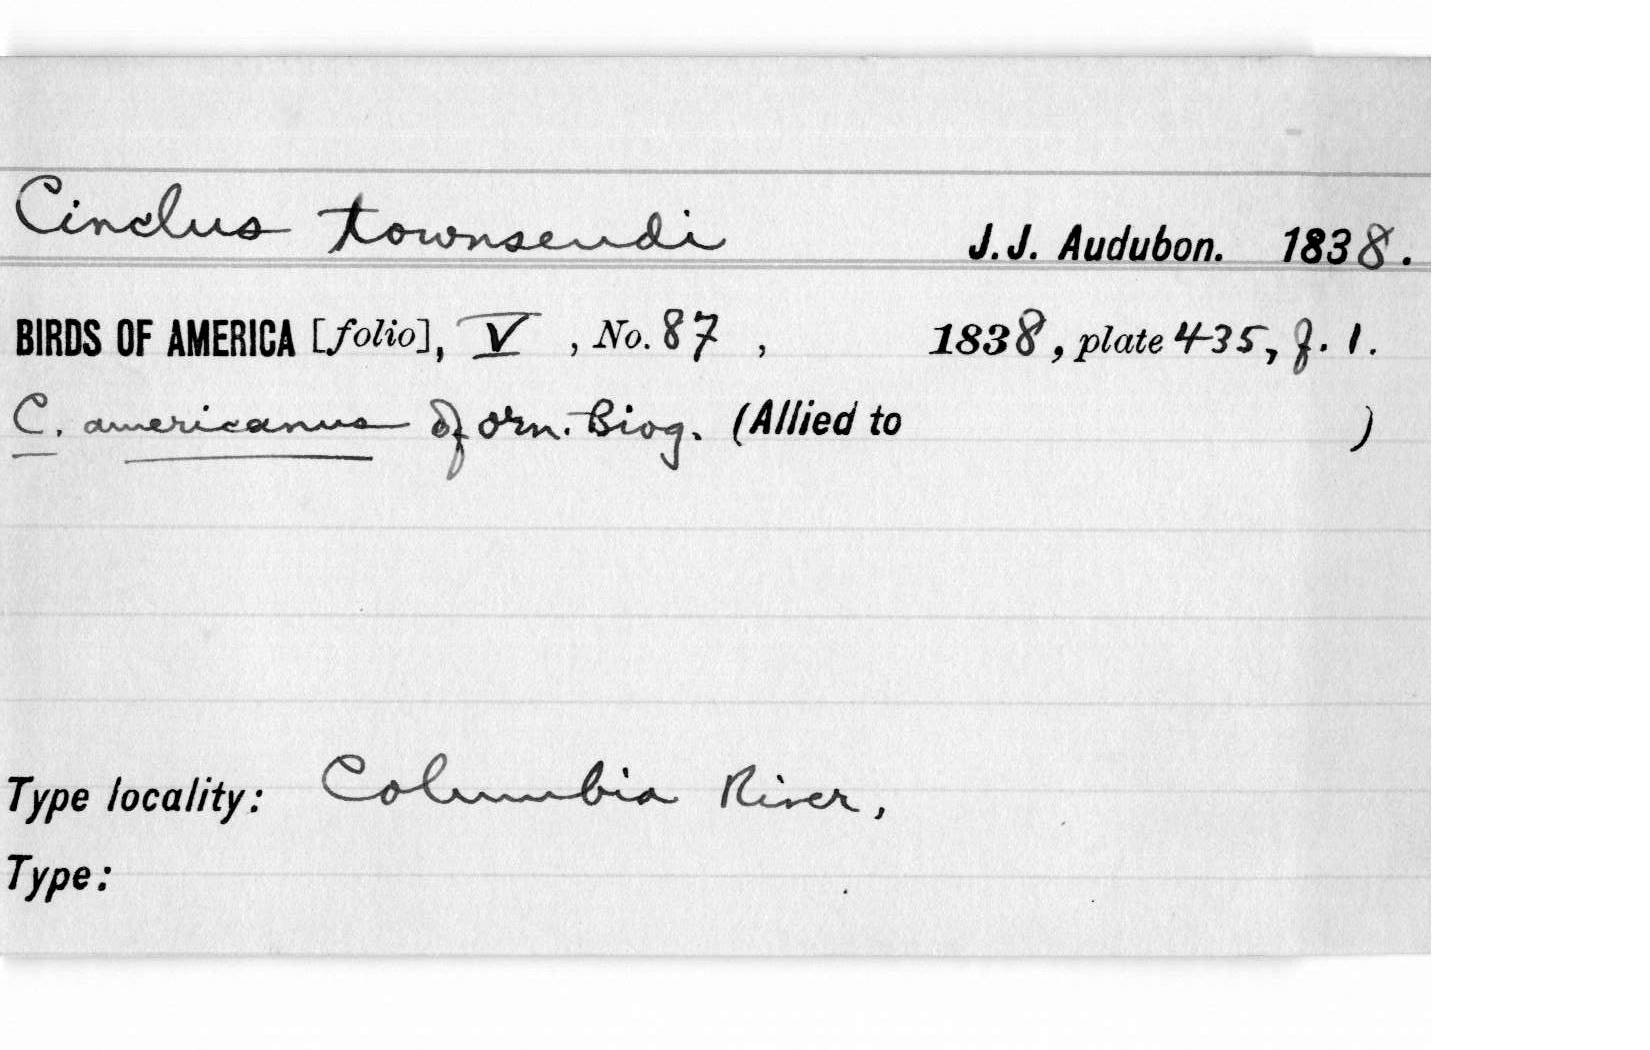 Cinclus townsendi J.J. Audubon. 1838.
BIRDS OF AMERICA [folio], V, No. 87, 1838, plate 435, f. 1.
C. americanus of Orn. Biog. (Allied to )
Type locality: Columbia River,
Type: